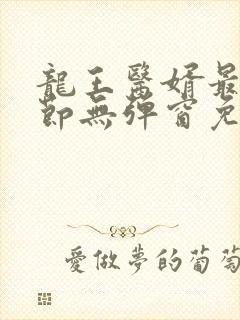 龍王醫婿最
節無彈窗免
愛做夢的葡萄